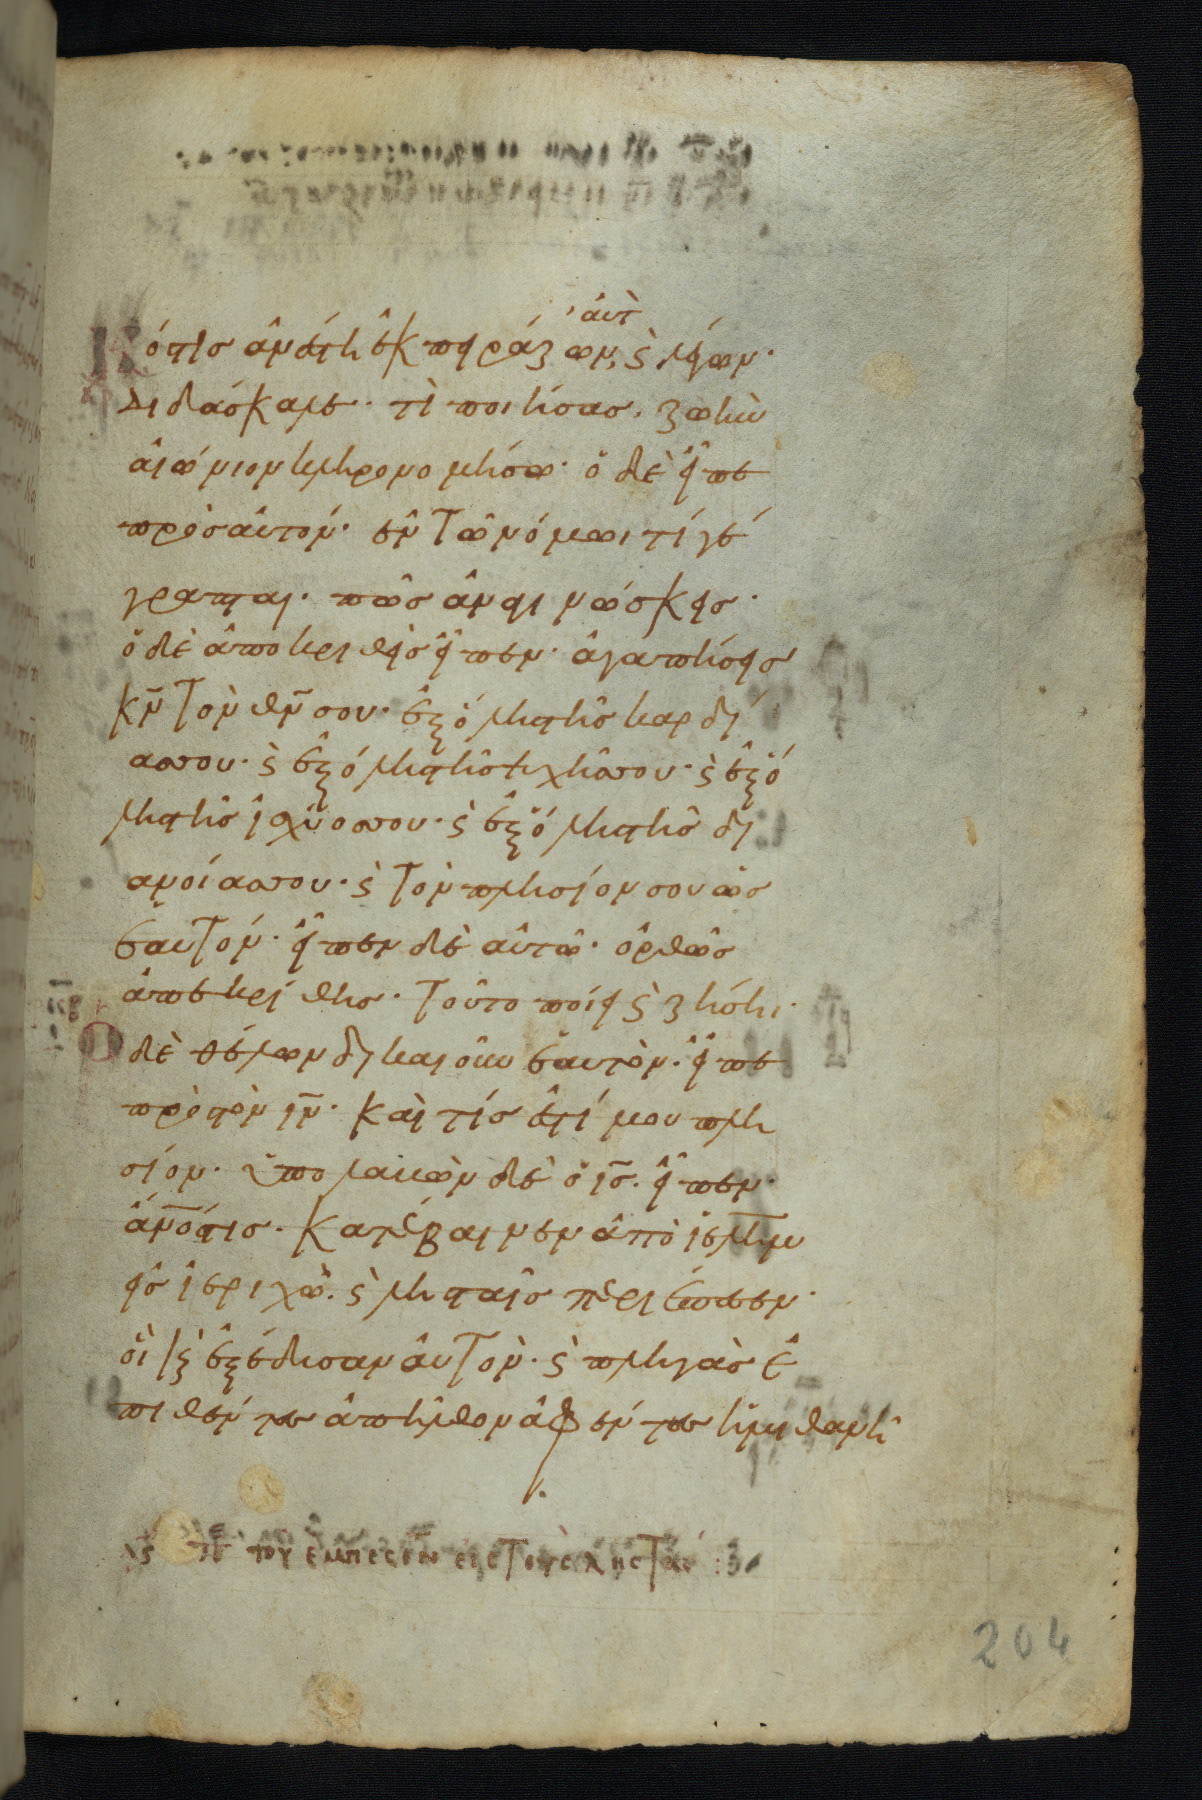 ό τις ἀνέστη ἐκπειράζων, ϗ λέγων·
αὐτ
διδάσκαλε· τί ποιήσας, ζωὴν
αἰώνιον κληρονομήσω· ὁ δὲ εἶπε
πρὸς αὐτόν· ἐν τῶ νόμωι τί γέ
γραπται· πῶς ἀναγινώσκεις·
ὁ δὲ ἀποκριθεὶς εἶπεν· ἀγαπήσεις
κ̅ν̅ τὸν θ̅ν̅ σου· ἐξ ὅλης τῆς καρδί
ας σου· ϗ ἐξ ὅλης τῆς ψυχῆς σου· ϗ ἐξ ὅ
λης τῆς ἰσχύος σου· ϗ ἐξ ὅλης τῆς δι
ανοίας σου· ϗ τὸν πλησίον σου ὡς
ἑαυτόν· εἶπεν δὲ αὐτῶ· ὀρθῶς
ἀπεκρίθης· τοῦτο ποίει ϗ ζήση·
Ὁ δὲ θέλων δικαιοῦν ἑαυτὸν· εἶπε
πρὸς τὸν ι̅ν̅· καὶ τίς ἐστί μου πλη
σίον· ὑπολαβὼν δὲ ὁ ι̅ς̅· εἶπεν·
ἄν̅ο̅ς̅ τις· κατέβαινεν ἀπὸ ι̅ε̅λ̅η̅μ̅
εἰς ἱεριχώ· ϗ λησταῖς περιέπεσεν·
οἳ ϗ ἐξέδυσαν αὐτὸν· ϗ πληγὰς ἐ
πιθέντες ἀπῆλθον ἀφέντες ἡμιθανῆ
του εμπεσον εις τους λῃστάς
204